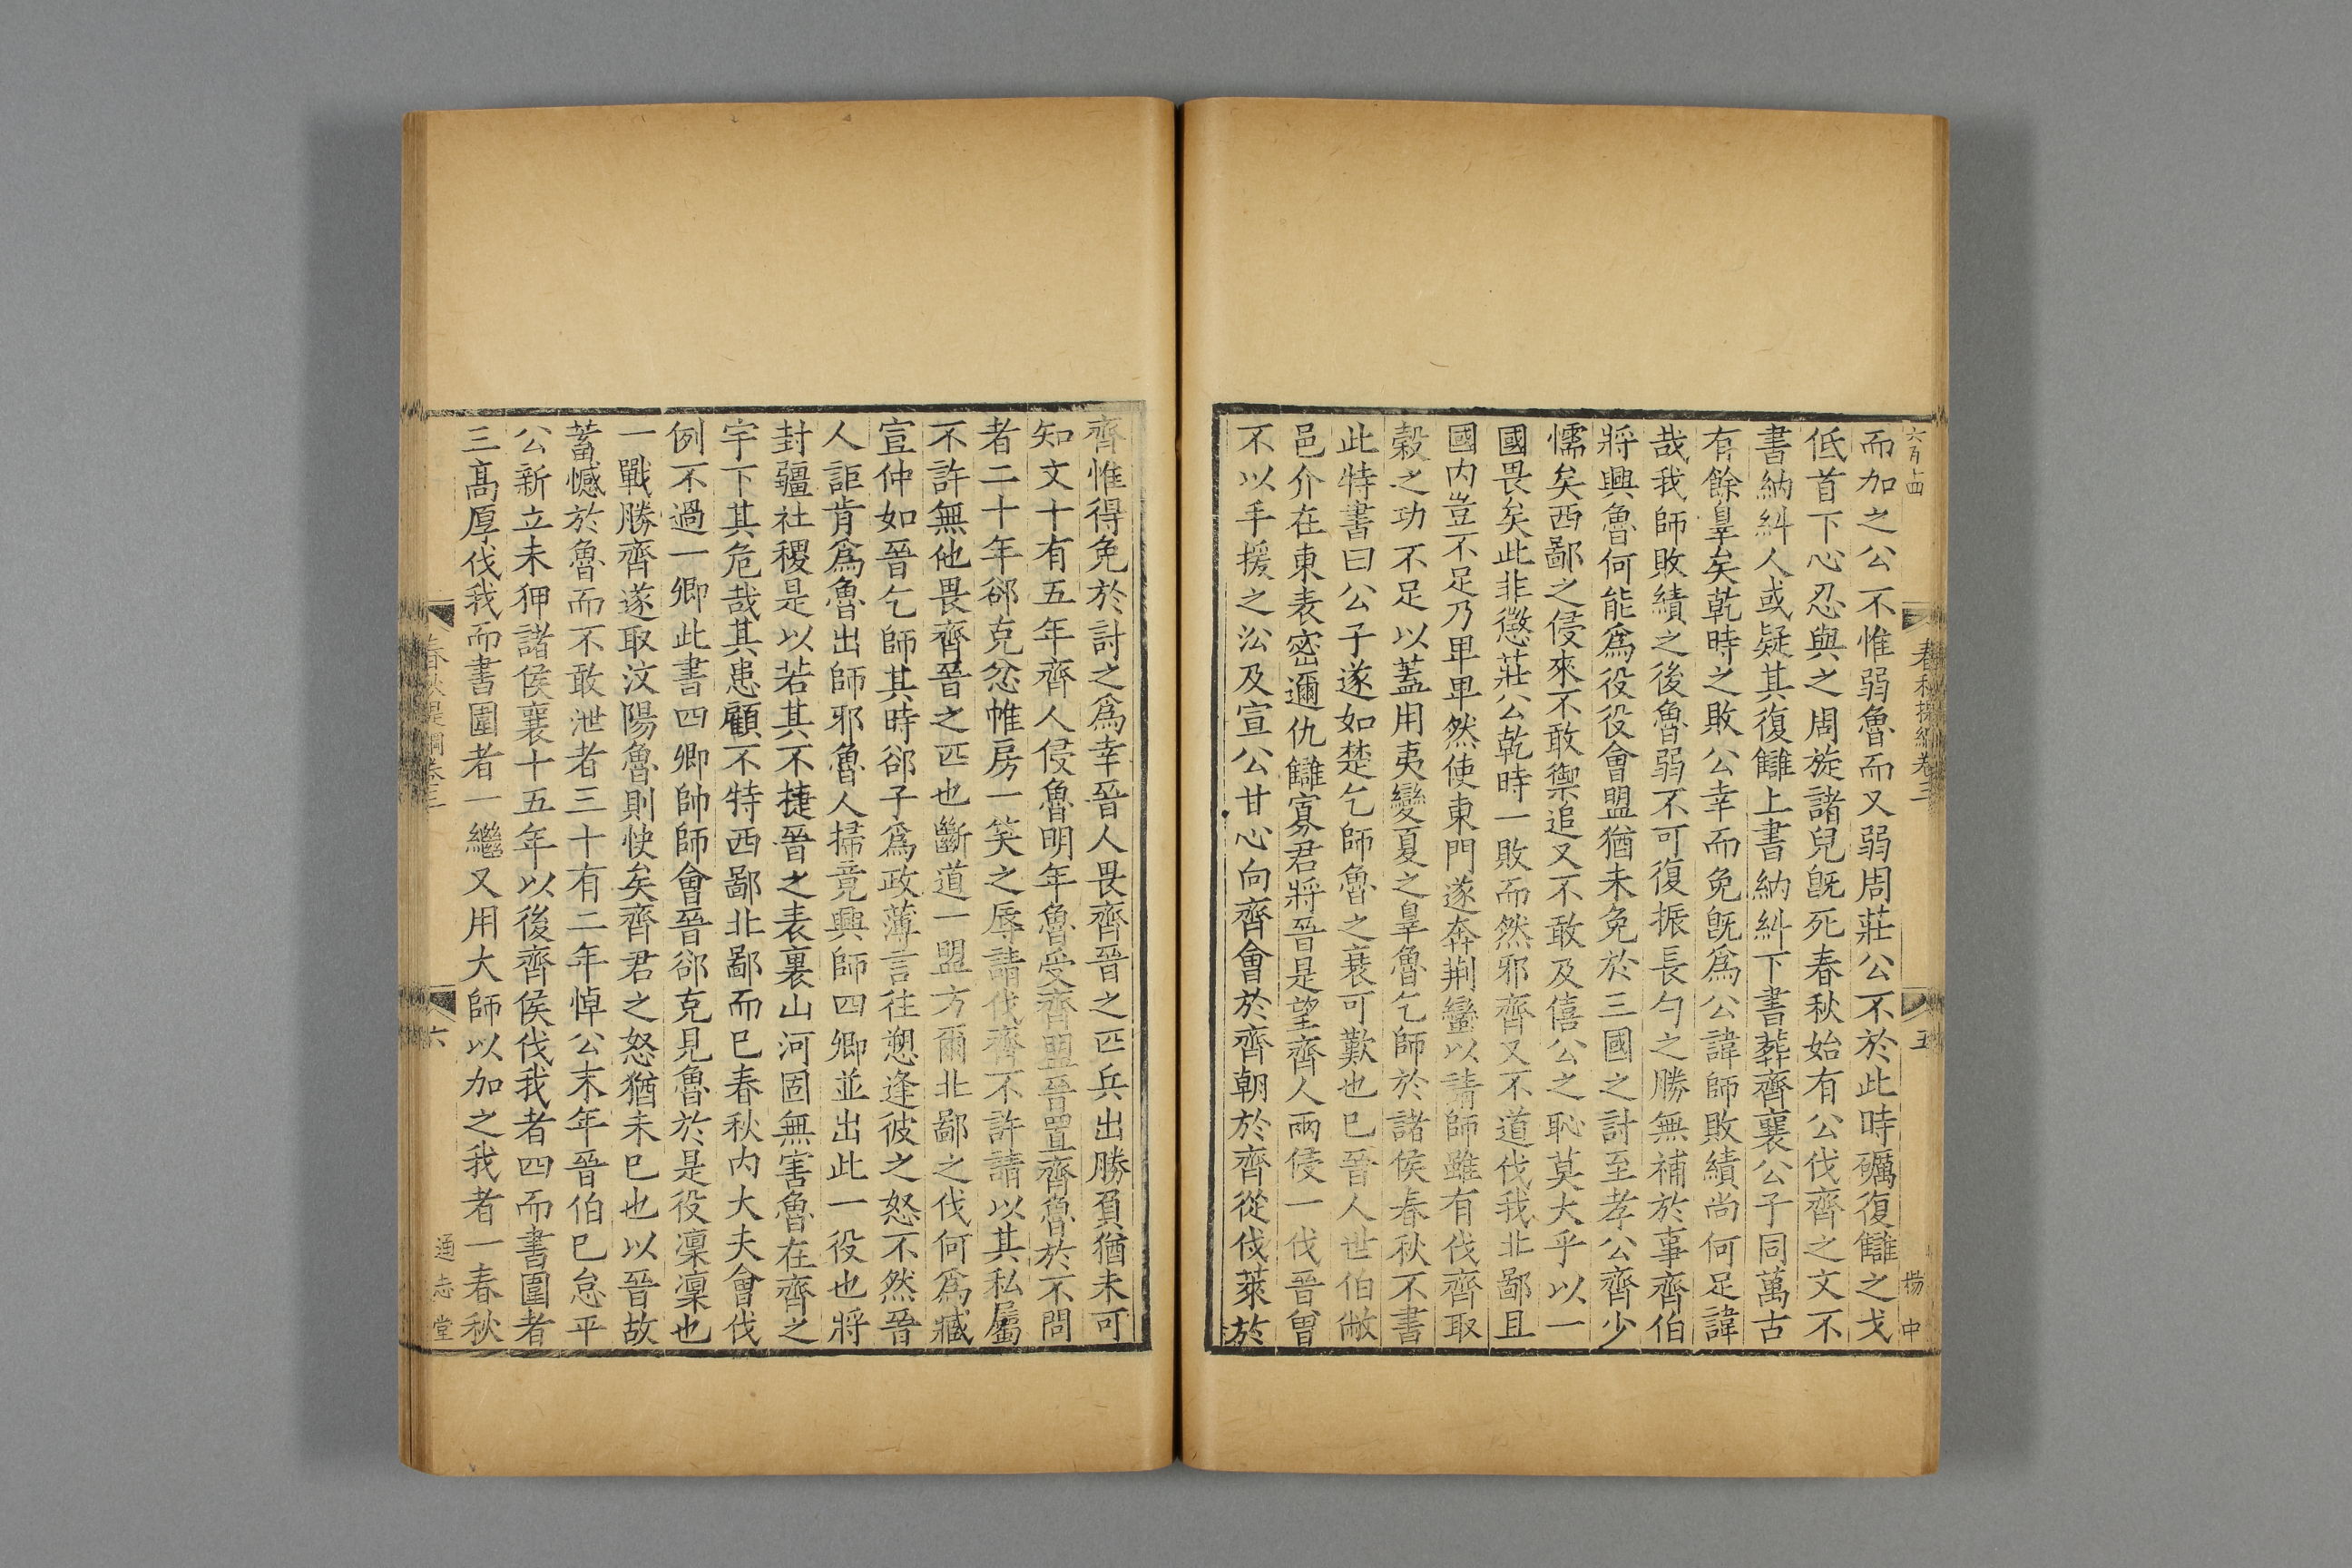 春秋提綱卷三
五
楊
中
而加之公不惟弱魯而又弱周莊公不於此時礪復讎之戈
低首下心忍與之周旋諸兒旣死春秋始有公伐齊之文不
書納糾人或疑其復讎上書納糾下書葬齊襄公子同萬古
有餘辠矣乾時之敗公幸而免旣爲公諱師敗績尚何足諱
哉我師敗績之後魯弱不可復振長勺之勝無補於事齊伯
將興魯何能爲役役會盟猶未免於三國之討至孝公齊少
懦矣西鄙之侵來不敢禦追又不敢及僖公之恥莫大乎以一
國畏矣此非懲莊公乾時一敗而然邪齊又不道伐我北鄙且
國內豈不足乃畢畢然使東門遂奔荆蠻以請師雖有伐齊取
穀之功不足以蓋用夷變夏之辠魯乞師於諸侯春秋不書
此特書曰公子遂如楚乞師魯之衰可歎也巳晉人世伯敝
邑介在東表密邇仇讎寡君將晉是望齊人兩侵一伐晉曾
不以手援之㳂及宣公甘心向齊會於齊朝於齊從伐萊於
齊惟得免於討之爲幸晉人畏齊晉之匹兵出勝負猶未可
知文十有五年齊人侵魯明年魯受齊盟晉置齊魯於不問
者二十年郤克忿帷房一笑之辱請伐齊不許請以其私屬
不許無他畏齊晉之匹也斷道一盟方爾北鄙之伐何爲臧
宣仲如晉乞師其時郤子爲政薄言往愬逢彼之怒不然晉
人詎肯爲魯出師邪魯人掃竟興師四卿並出此一役也將
封疆社稷是以若其不捷晉之表裏山河固無害魯在齊之
宇下其危哉其患顧不特西鄙北鄙而巳春秋內大夫會伐
例不過一卿此書四卿帥師會晉郤克見魯於是役凜凜也
一戰勝齊遂取汶陽魯則快矣齊君之怒猶未巳也以晉故
蓄憾於魯而不敢泄者三十有二年悼公末年晉伯巳怠平
公新立未狎諸侯襄十五年以後齊侯伐我者四而書圍者
三高厚伐我而書圍者一繼又用大師以加之我者一春秋
春秋提綱卷三
六
通志堂